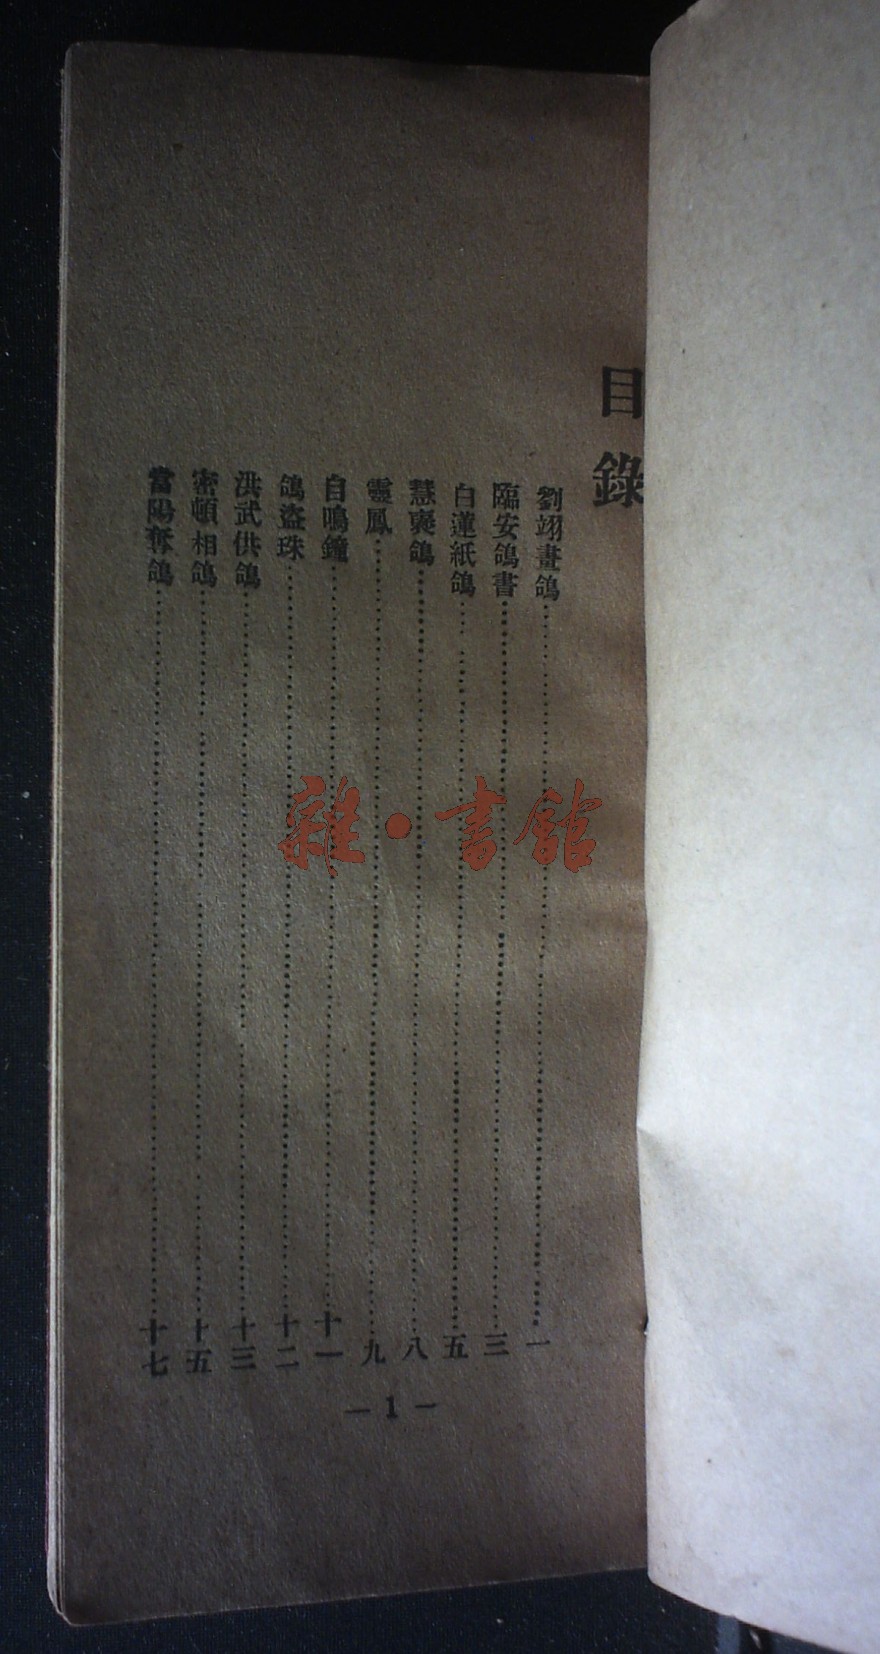 目錄
劉翊畫鴿……一
臨安鴿書……三
白蓮紙鴿……五
慧褒鴿……八
靈鳳……九
自鳴鐘……十一
鴿盜珠……十二
洪武供鴿……十三
密頓相鴿……十五
當陽奪鴿……十七
— 1 —
雜·書館